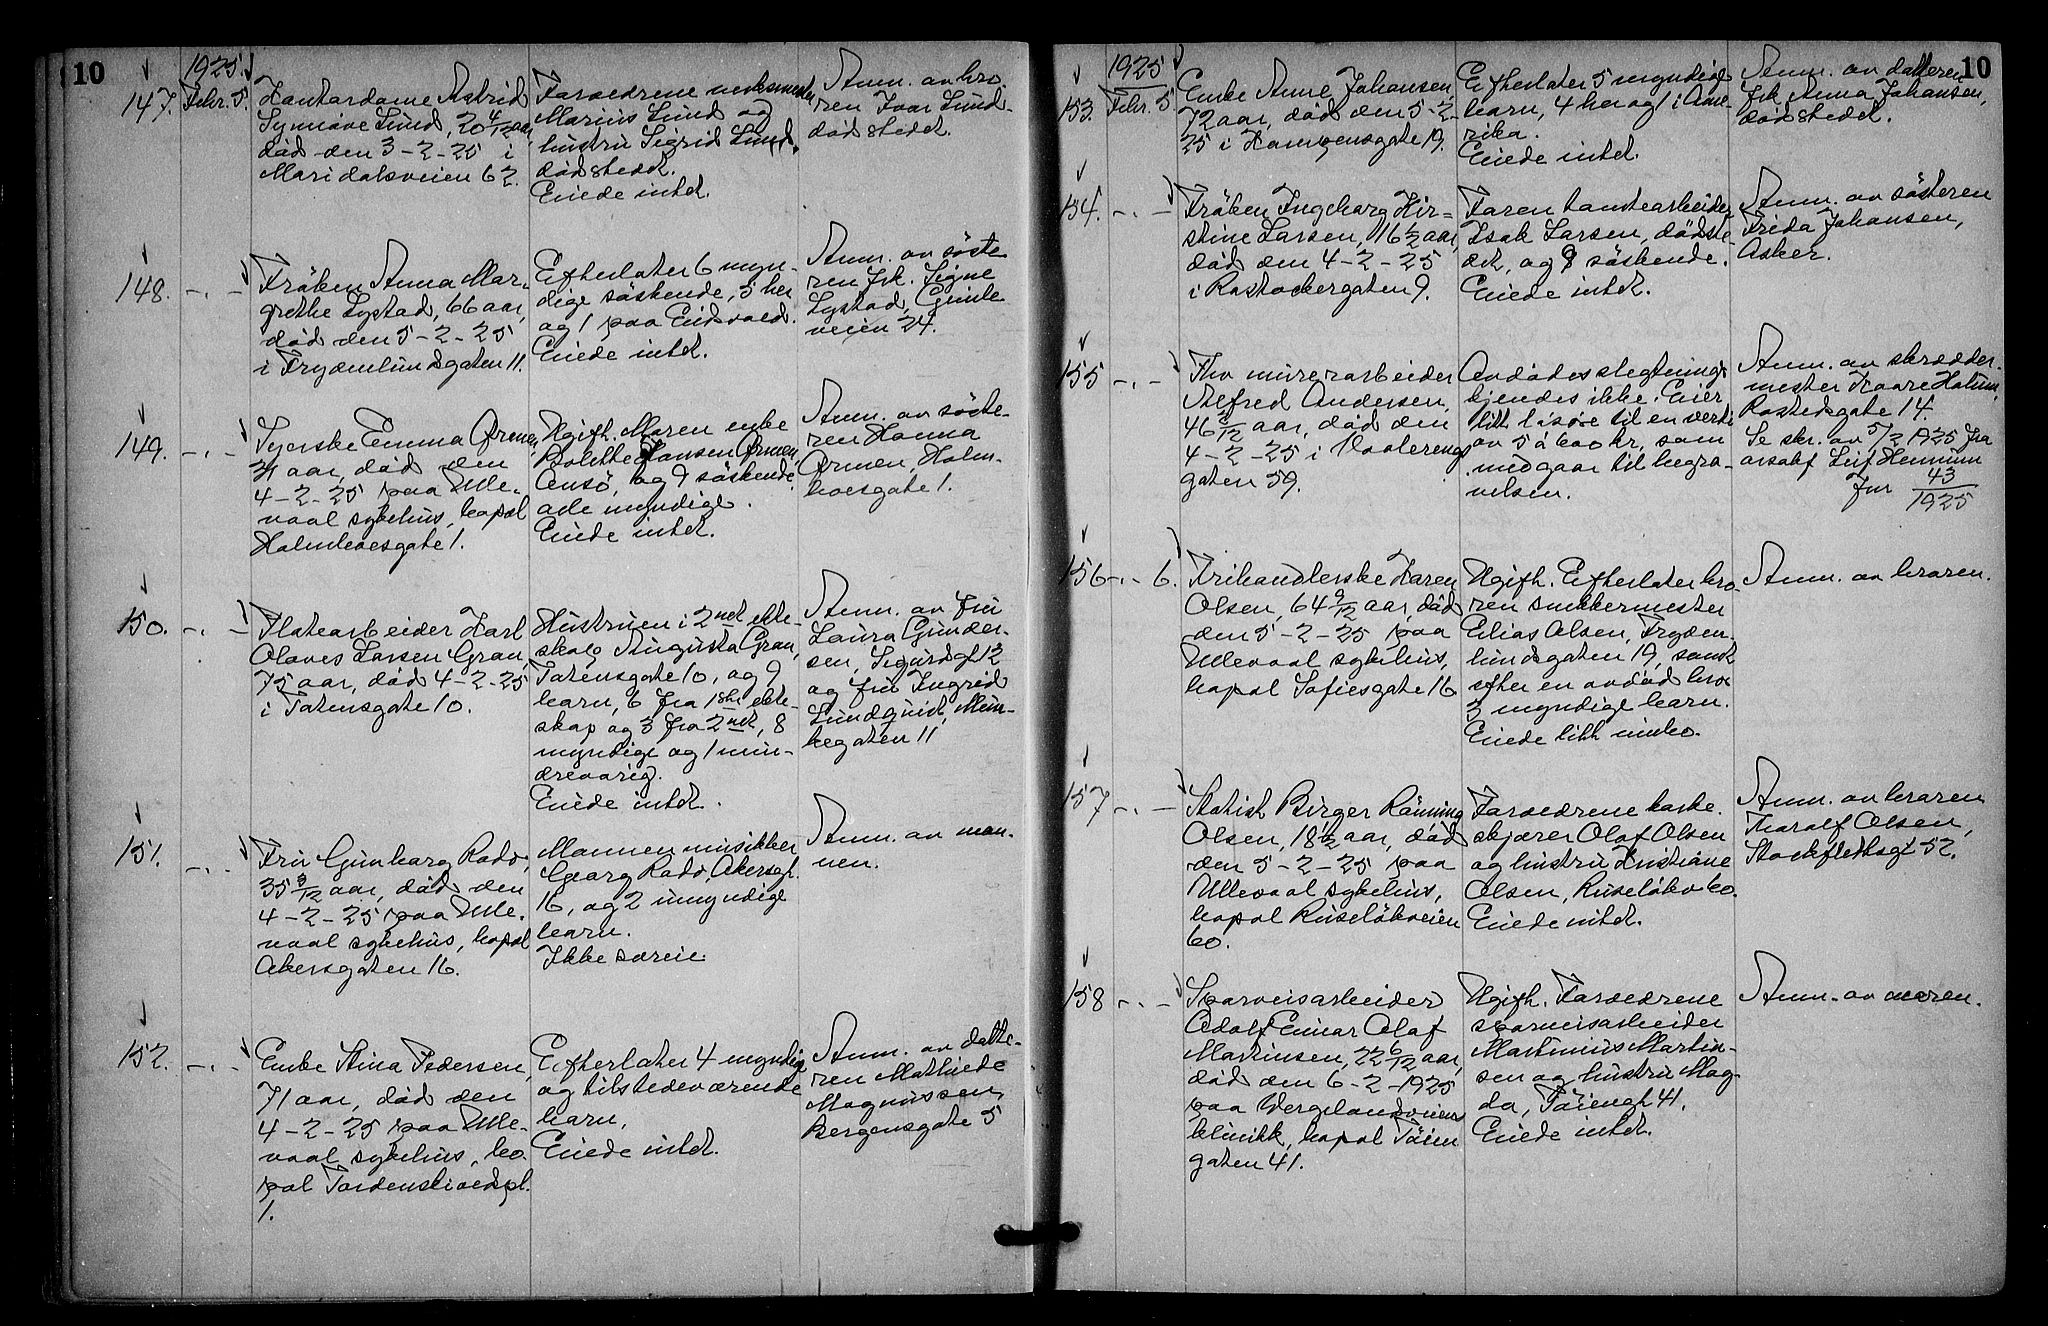 10
1925.
147. Febr. 5.
Kontordame Astrid
Synnöve Lund, 20 4/12 aar,
död den 3-2-25 i
Maridalsveien 62.
Forældrene verksmester
Marius Lund og
hustru Sigrid Lund,
dödstedet.
Eiede intet.
Anm. av bro
ren Ivar Lund
dödstedet.
148. -.-
Fröken Anna Mar-
grethe Lystad, 66 aar,
död den 5-2-25
i Frydenlundsgaten 11.
Efterlater 6 myn-
dige söskende, 5 her
og 1 paa Eidsvold.
Eiede intet.
Anm. av söste
ren frk. Signe
Lystad, Gimle
veien 24.
149. -.-
Syerske Emma Örmen,
31 aar, död den
4-2-25 paa Ulle-
vaal sykehus, bopæl
Holmboesgate 1.
Ugift. Moren enke
Bolette Jansen Örmen,
og 9 söskende
alle myndige.
Eiede intet.
Anm. av söste-
ren Hanna
Örmen, Holm-
boesgate 1.
150. -.-
Platearbeider Karl
Olaves Larsen Gran
75 aar, död 4-2-25
i Tatensgate 10.
Hustruen i 2net ekte-
skap Augusta Gran,
Tatensgate 10, og 9
barn, 6 fra 1ste ekte-
skap og 3 fra 2net, 8
myndige og 1 min-
dreaarig.
Eiede intet.
Anm. av fru
Laura Gunder-
sen, Sigurdsgt 12
og fru Ingrid
Lundquist, Mein-
kegaten 11
151. -.-
Fru Gunborg Rado,
35 9/12 aar, död den
4-2-25 paa Ulle-
vaal sykehus, bopæl
Akersgaten 16.
Mannen musikker
Georg Rado, Akersgt.
16, og 2 umyndige
barn.
Ikke særeie.
Anm. av man-
nen.
152. -.-
Enke Stina Pedersen,
71 aar, död den
4-2-25 paa Ulle-
vaal sykehus, bo-
pæl Tordenskioldspl.
1.
Efterlater 4 myndige
og tilstedeværende
barn.
Eiede intet.
Anm. av datte-
ren Mathilde
Magnussen,
Bergensgate 5
10
1925
153. Febr. 5.
Enke Anne Johansen,
72 aar, död den 5-2-
25 i 19.
Efterlater 5 myndige
barn, 4 her og 1 i Ame-
rika.
Eiede intet.
Anm. av datteren
frk. Anna Johansen,
dödstedet.
154. -.-
Fröken Ingeborg Kir-
stine Larsen, 16 1/2 aar,
död den 4-2-25
i Rostockergaten 9.
Faren tomtearbeider
Isak Larsen, dödste-
det, og 8 söskende.
Eiede intet.
Anm. av sösteren
Frida Johansen,
Asker.
155 -.-
Fhv murerarbeider
Alfred Andersen,
46 2/12 aar, död den
4-2-25 i Vaalereng
gaten 59.
Avdödes slegtninge
kjendes ikke. Eier
litt lösöre til en verdi
av 5 à 600 kr, som
medgaar til begra-
velsen.
Anm. av skrædder-
mester Kaare Holum,
Rostedsgate 14.
Se skr. av 5/2 1925 fra
o.r.sakf Leif Hennum
Jnr 43/1925
156 -.- 6.
Frihandlerske Karen
Olsen, 64 9/12 aar, död
den 5-2-25 paa
Ullevaal sykehus,
bopæl Sofiesgate 16
Ugift. Efterlater bro-
ren snekkermester
Elias Olsen, Fryden-
lundsgaten 19, samt
efter en avdöd bror
3 myndige barn.
Eiede litt innbo.
Anm. av broren.
157 -.-
Statist Birger Rönning
Olsen, 18 1/2 aar, död
den 5-2-25 paa
Ullevaal sykehus,
bopæl Ruselökveien
60.
Forældrene kaske-
skjærer Olaf Olsen
og hustru Kristiane
Olsen, Ruselökv 60.
Eiede intet.
Anm. av broren
Thoralf Olsen,
Stockflethsgt 52.
158 -.-
Sporveisarbeider
Adolf Einar Olaf
Martinsen, 22 6/12 aar,
död den 6-2-1925
paa Vergelandsveiens
klinikk, bopæl Töien
gaten 41.
Ugift. Forældrene
sporveisarbeider
Martinius Martin-
sen og hustru Mag-
da, Töiengt 41.
Eiede intet.
Anm. av moren.